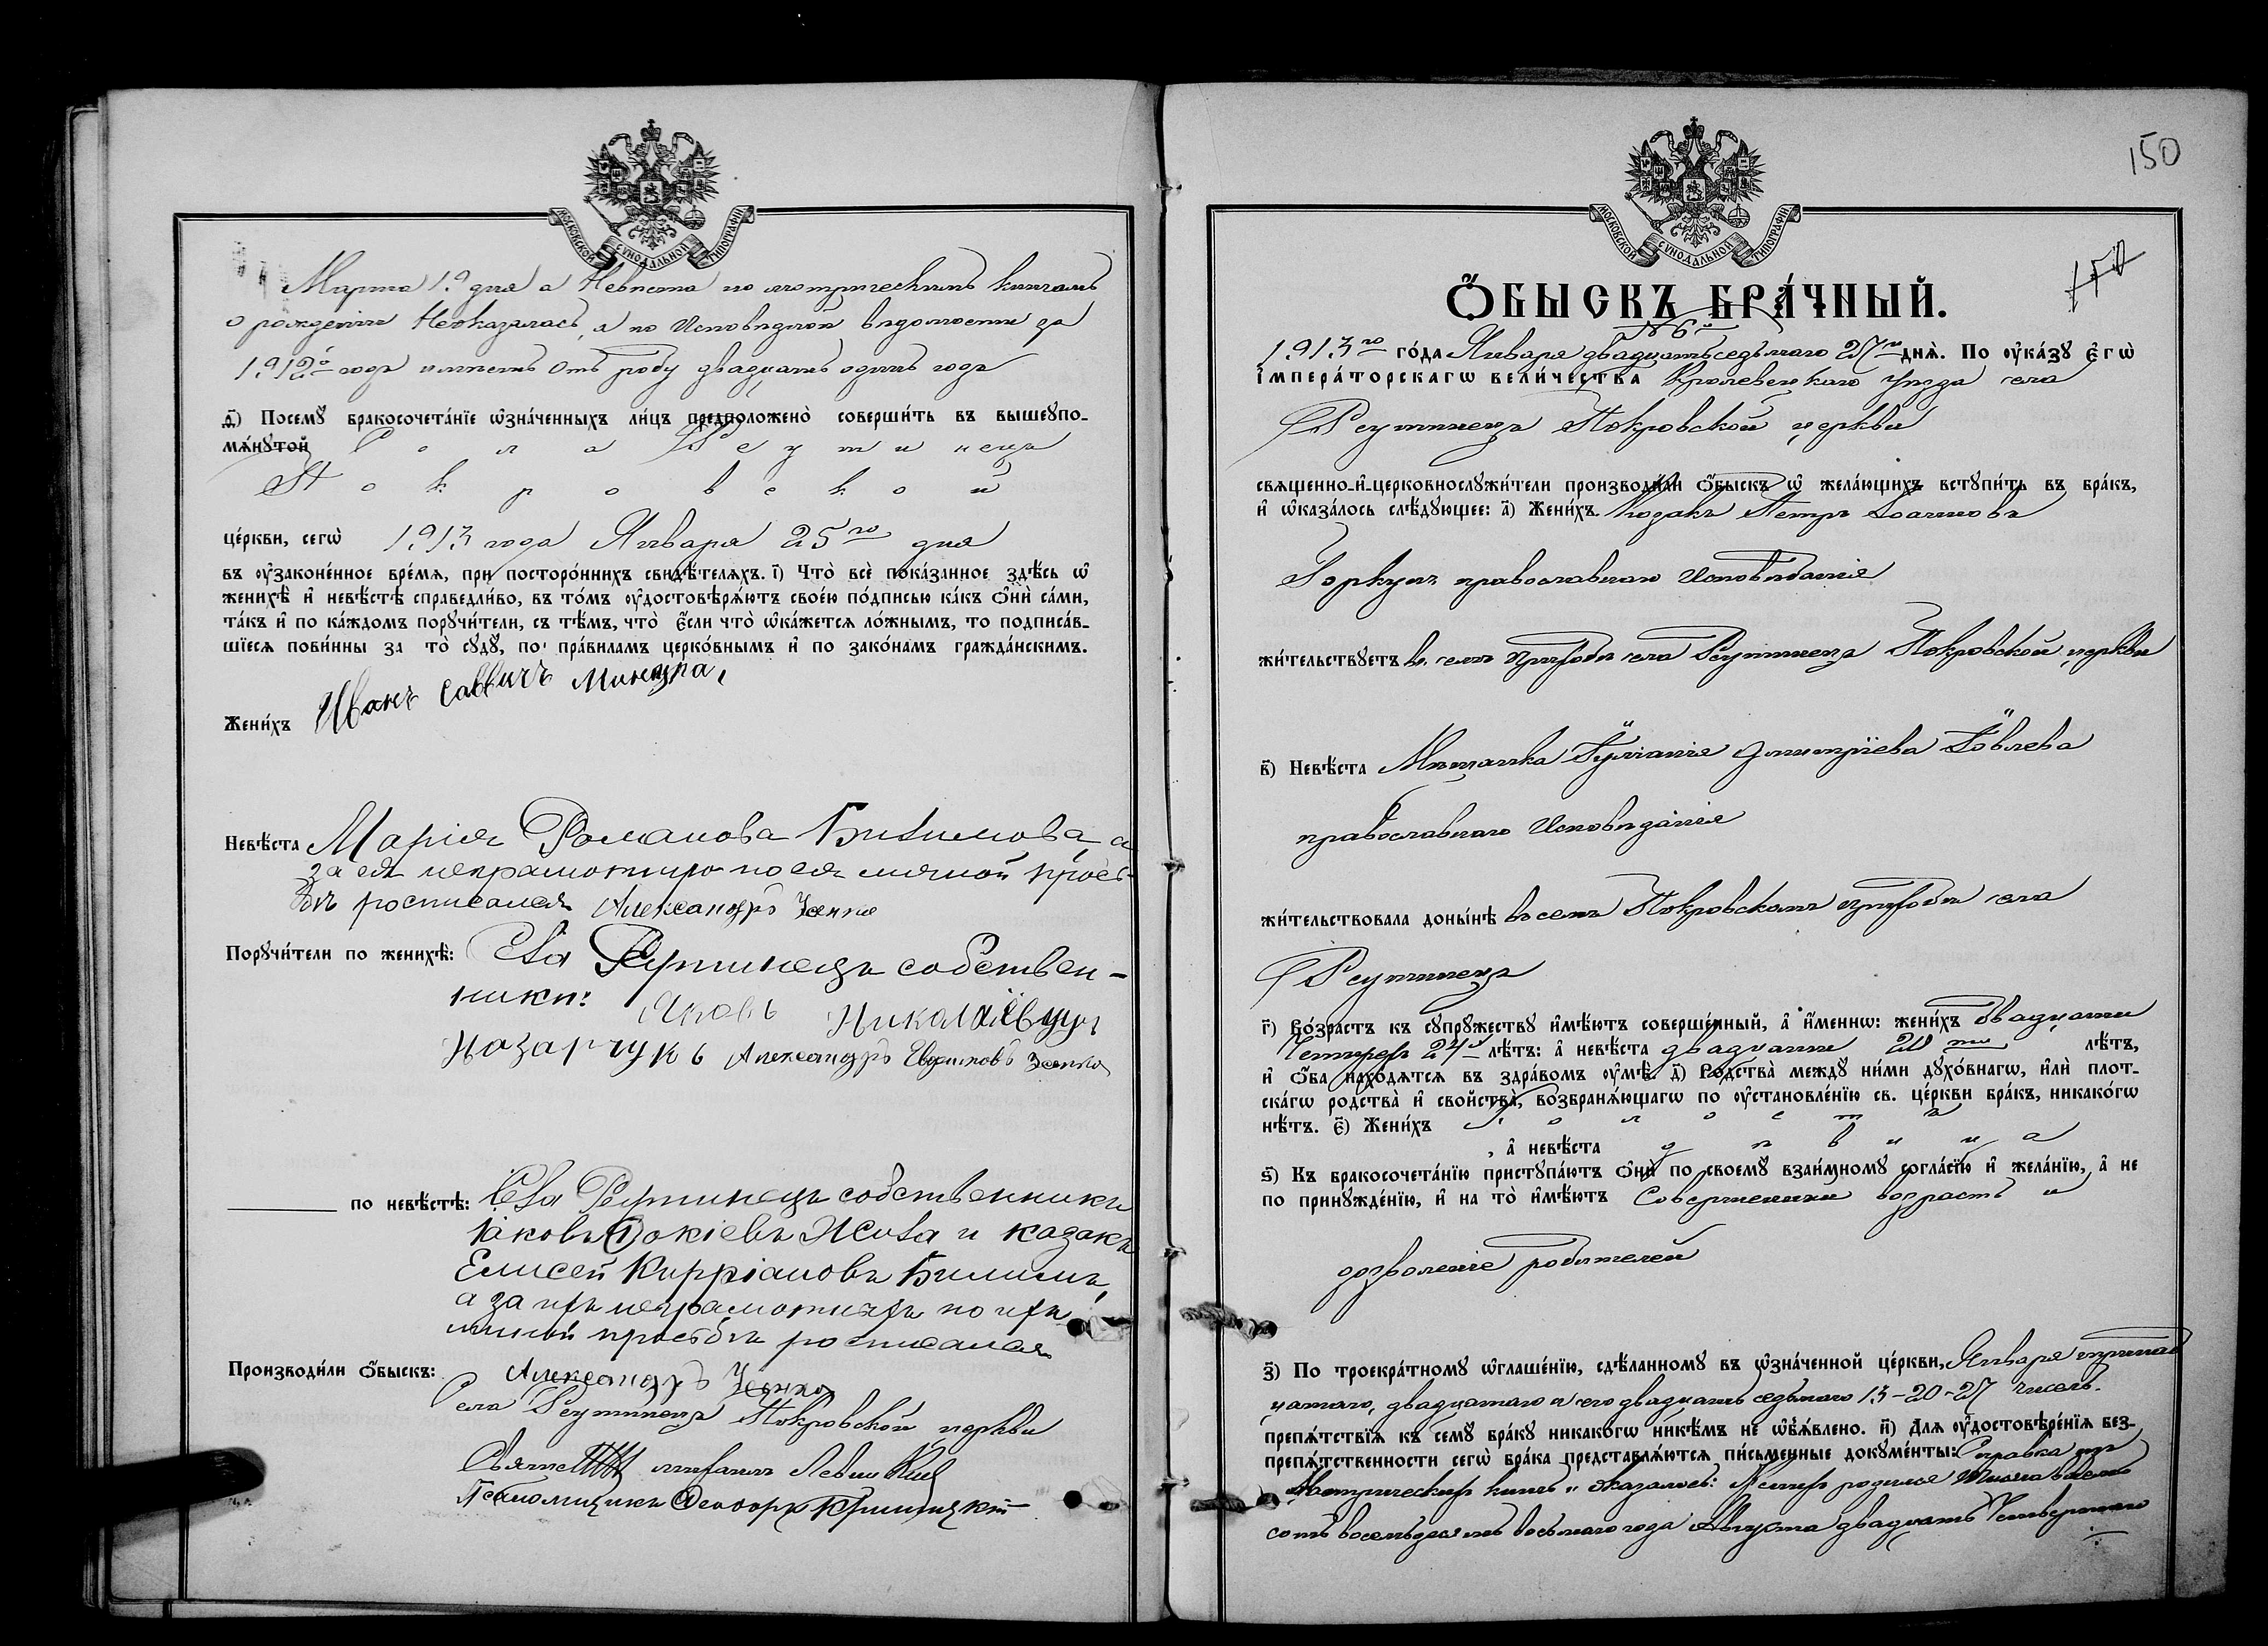 МОСКОВСКОЙ СѴНОДАЛЬНОЙ ТИПОГРАФІИ
Марта 19 дня а Невѣста по метрическимъ книгамъ
о рожденіи Неоказалась, а по Исповѣдной вѣдомости за
1912о годъ имѣетъ отъ роду двадцать одинъ годъ
д҃) Посемꙋ бракосочета́нїе ѡ҆зна́ченныхъ ли́цъ предположено̀ соверши́ть въ вышеꙋпо-
мѧ́нꙋтой Села Реутинецъ
Покровской
це́ркви, сегѡ̀ 1913 года Января 25го дня
въ ᲂу҆законе́нное вре́мѧ, при посторо́ннихъ свидѣ́телѧхъ. і҃) Что̀ всѐ пока́занное здѣ́сь ѡ҆
женихѣ̀ и҆ невѣ́стѣ справедли́во, въ то́мъ ᲂу҆достовѣрѧ́ютъ свое́ю по́дписью ка́къ ѻ҆нѝ са́ми,
та́къ и҆ по ка́ждомъ порꙋчи́тели, съ тѣ́мъ, что̀ є҆́сли что̀ ѡ҆ка́жетсѧ ло́жнымъ, то подписа́в-
шїесѧ пови́нны за то̀ сꙋдꙋ̀, по пра́виламъ церко́внымъ и҆ по зако́намъ гражда́нскимъ.
Жени́хъ Иванъ Саввичъ
Невѣ́ста Марія Романова а
за ея неграмотную по ея личной прось-
бѣ росписался Александръ Усенко
Порꙋчи́тели по женихѣ̀: Села Реутинецъ собствен-
ники: Яковъ Николаевичъ
Назарчукъ Александръ Усенко
по невѣ́стѣ: Села Реутинецъ собственникъ
Іаковъ и казакъ
Елисей Кирріановъ Билимъ,
а за ихъ неграмотныхъ по ихъ
личной просьбѣ росписался
Производи́ли ѻ҆́быскъ: Александръ Усенко
Села Реутинецъ Покровской церкви
Михаилъ
Псаломщикъ Ѳеодоръ
150
МОСКОВСКОЙ СѴНОДАЛЬНОЙ ТИПОГРАФІИ
150
Ѻ҆́БЫСКЪ БРА́ЧНЫЙ.
№ 6й
1913го го́да Января двадцатьседьмаго 27го днѧ̀. По ᲂу҆ка́зꙋ є҆гѡ̀
і҆мпера́торскагѡ вели́чества Кролевецкаго Уѣзда села
Реутинецъ Покровской церкви
свѧщенно-и҆-церковнослꙋжи́тели производи́ли ѻ҆́быскъ ѡ҆ жела́ющихъ встꙋпи́ть въ бра́къ,
и҆ ѡ҆каза́лось слѣ́дꙋющее: а҃) Жени́хъ Козакъ Петръ Іоанновъ
православнаго Исповѣданія
жи́тельствꙋетъ въ семъ приходѣ села Реутинецъ Покровской церкви
в҃) Невѣ́ста Мѣщанка Іуліанія Дмитріева Іовлева
православнаго Исповѣданія
жи́тельствовала доны́нѣ въ семъ Покровскомъ приходѣ села
Реутинецъ
г҃) Во́зрастъ къ сꙋпрꙋ́жествꙋ и҆мѣ́ютъ соверше́нный, а҆ и҆́меннѡ: жени́хъ двадцати
Четырехъ 24хъ лѣ́тъ: а҆ невѣ́ста двадцати 20ти лѣ́тъ,
и҆ ѻ҆́ба нахо́дѧтсѧ въ здра́вомъ ᲂу҆мѣ̀. д҃) Ро́дства̀ междꙋ ни́ми дꙋхо́внагѡ, и҆лѝ плот-
ска́гѡ родства̀ и҆ сво́йства̀, возбранѧ́ющагѡ по ᲂу҆становле́нїю св. це́ркви бра́къ, никако́гѡ
нѣ́тъ. є҃) Жени́хъ Холостъ
, а҆ невѣ́ста дѣвица
ѕ҃) Къ бракосочета́нїю пристꙋпа́ютъ ѻ҆нѝ по своемꙋ̀ взаи́мномꙋ согла́сїю и҆ жела́нїю, а҆ не
по принꙋжде́нїю, и҆ на то̀ и҆мѣ́ютъ Совершенный возрастъ и
дозволеніе родителей
з҃) По троекра́тномꙋ ѡ҆глаше́нїю, сдѣ́ланномꙋ въ ѡ҆зна́ченной це́ркви, Января тринад
цатаго, двадцатаго и его двадцать седьмаго 13-20-27 чиселъ.
препѧ́тствїѧ къ семꙋ̀ бра́кꙋ никако́гѡ никѣ́мъ не ѡ҆б̾ѧ́влено. и҃) Длѧ ᲂу҆достовѣре́нїѧ без-
препѧ́тственности сегѡ̀ бра́ка представлѧ́ютсѧ пи́сьменные докꙋме́нты: Справка изъ
Метрическихъ книгъ и оказалось: Женихъ родился Тысяча восемь
сотъ восемьдесятъ восьмаго года Августа двадцать Четвертаго